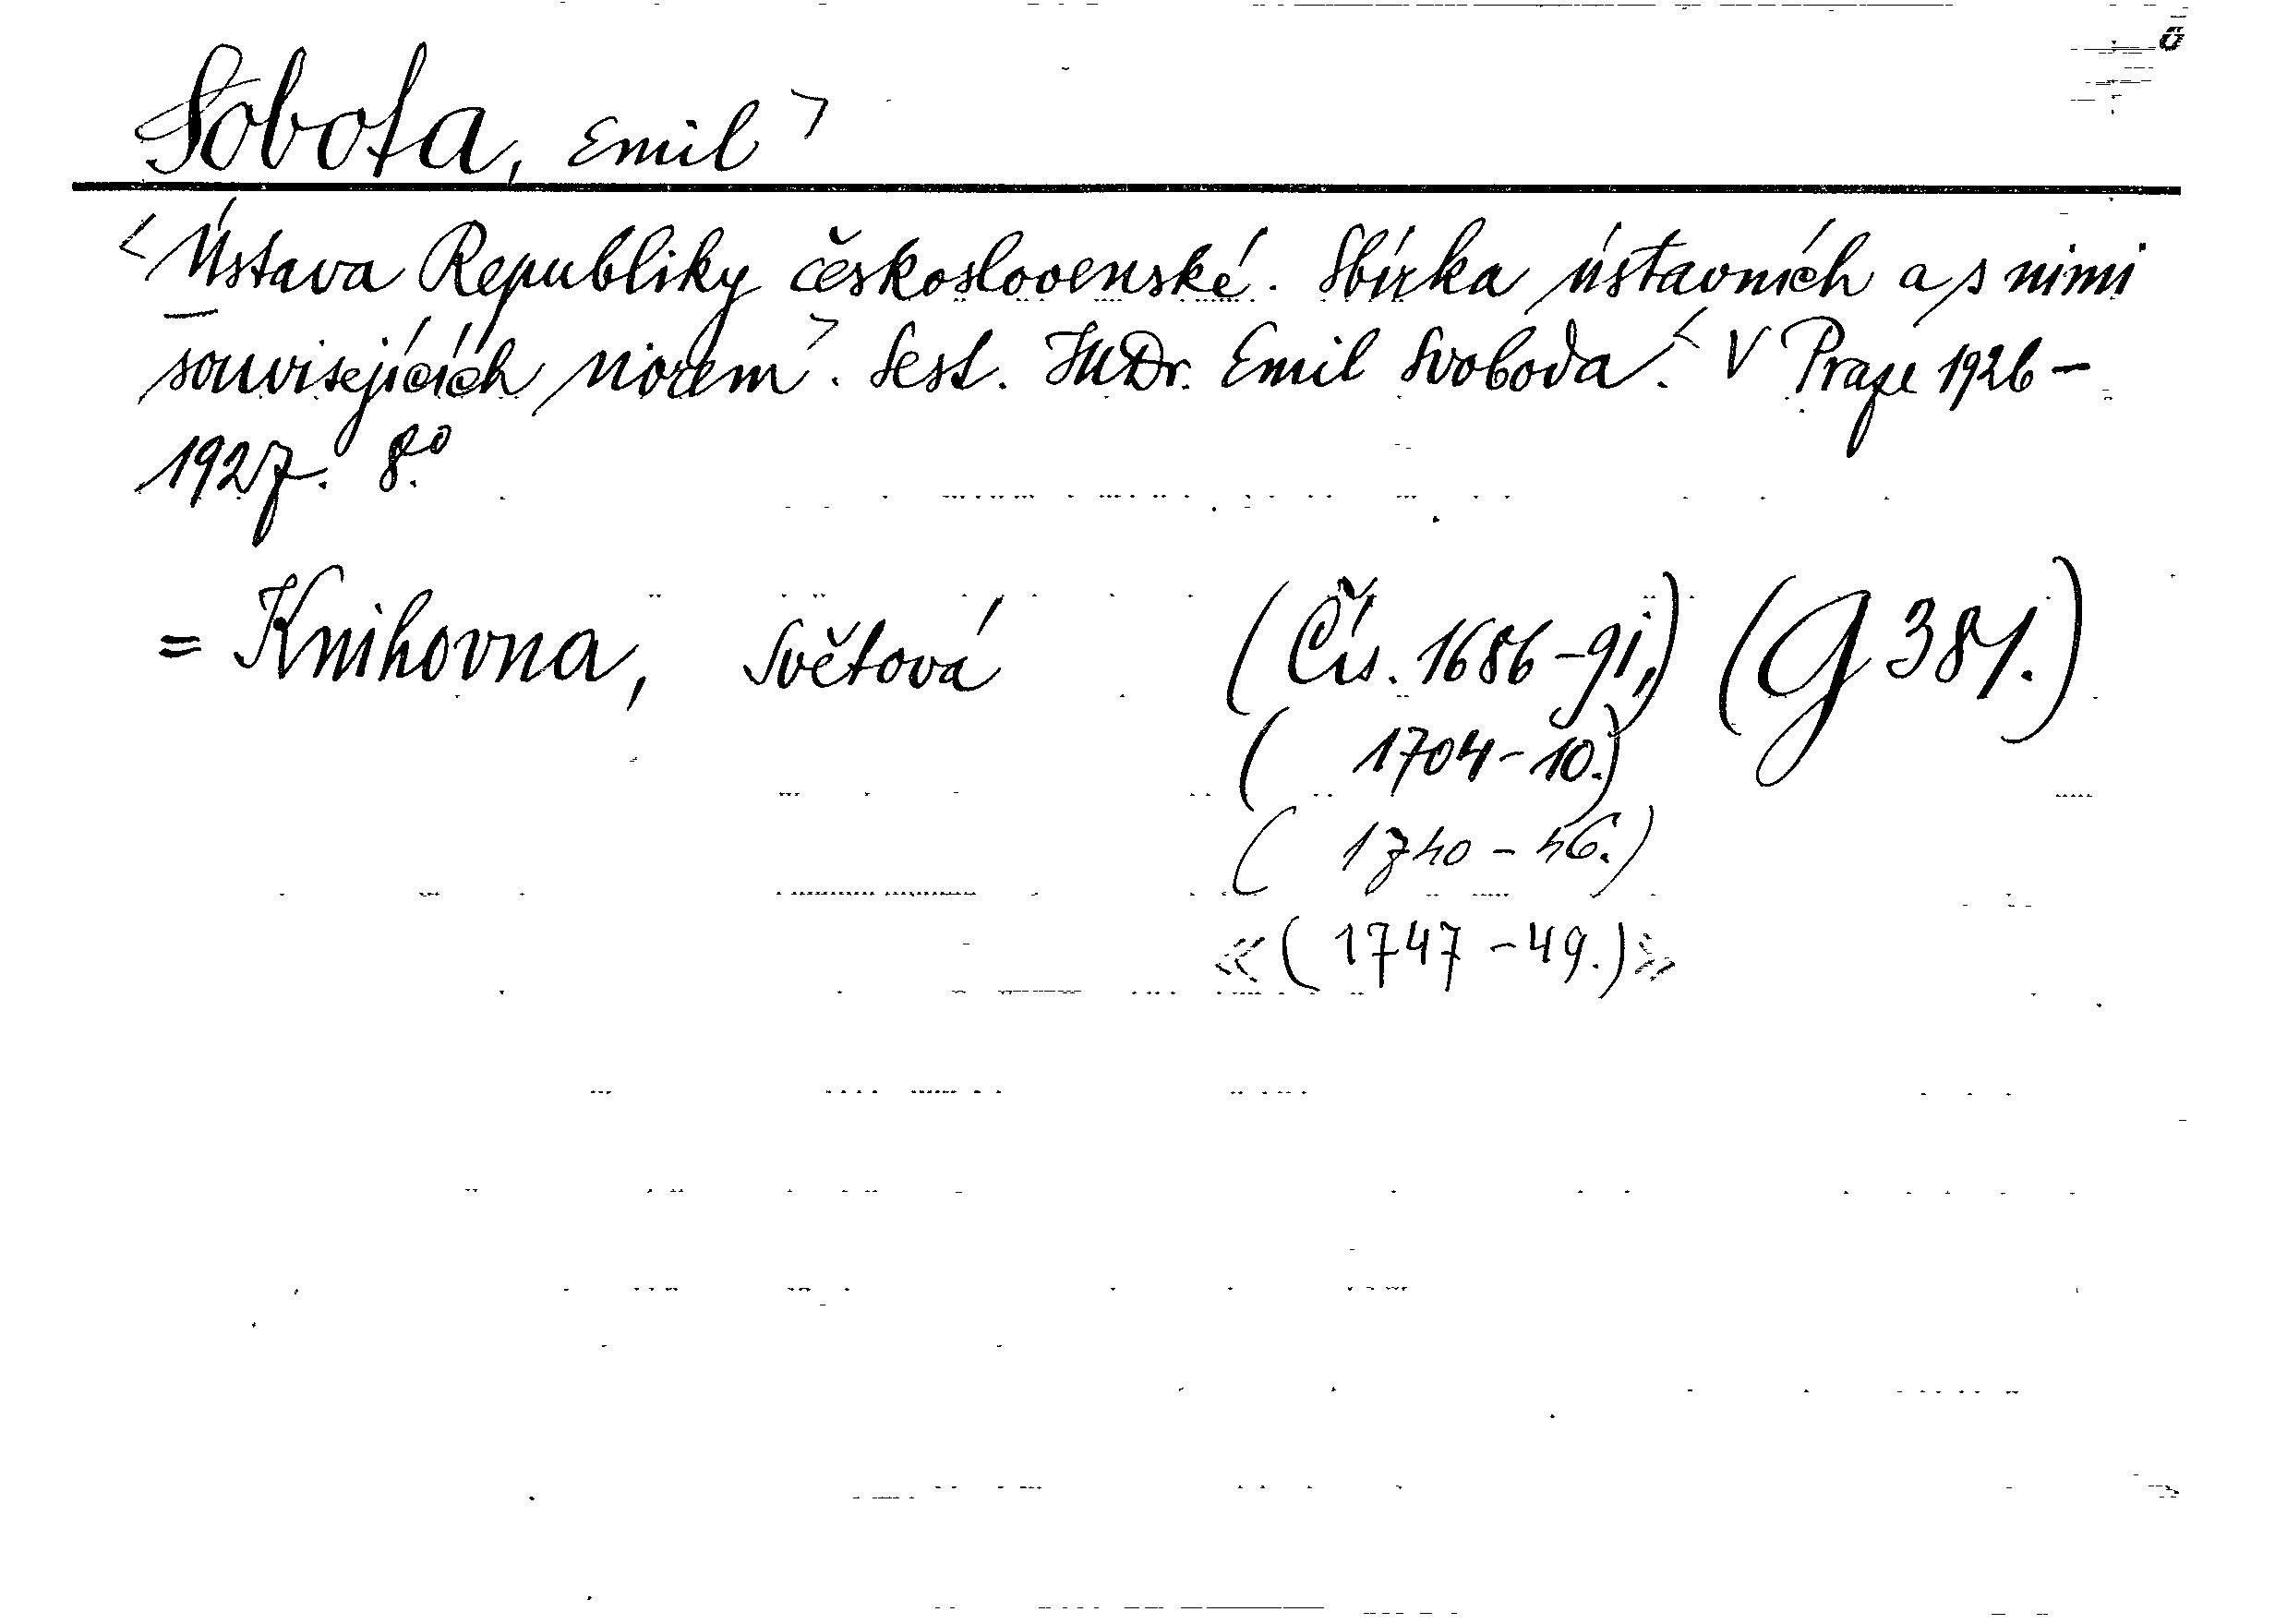 Sobota, Emil >
< Ústava Republiky československé. Sbírka ústavních a s nimi
souvisejících norem >. Sest. JUDr. Emil Svoboda. < V Praze 1926-
1927. 8°.
= Knihovna, Světová (Čís. 1686-91,) (G 381.)
( 1704-10.)
( 1740-46.)
«( 1747-49.)»